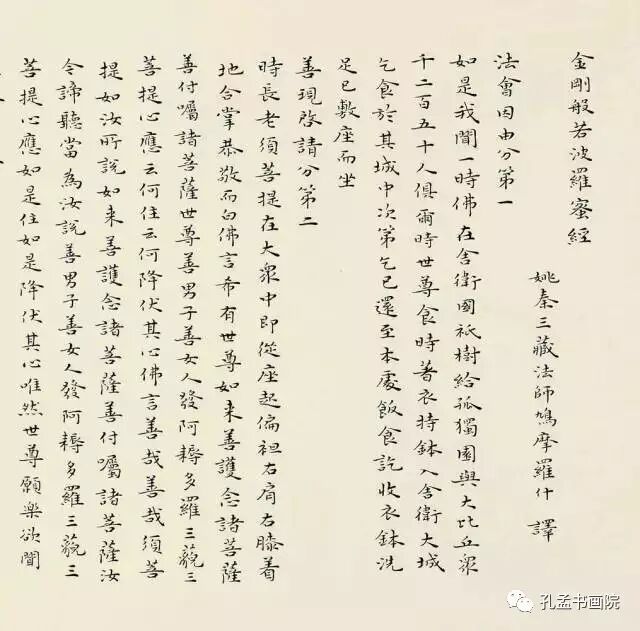 金剛般若波羅蜜經
姚秦三藏法師鳩摩羅什 譯
法會因由分第一
如是我聞一時佛在舍衛國祇樹給孤獨園與大比丘眾
千二百五十人俱爾時世尊食時著衣持鉢入舍衛大城
乞食於其城中次第乞已還至本處飯食訖收衣鉢洗
足已敷座而坐
善現啓請分第二
時長老須菩提在大眾中即從座起偏袒右肩右膝着
地合掌恭敬而白佛言希有世尊如来善護念諸菩薩
善付囑諸菩薩世尊善男子善女人發阿耨多羅三藐三
菩提心應云何住云何降伏其心佛言善哉善哉須菩
提如汝所說如来善護念諸菩薩善付囑諸菩薩汝
今諦聽當為汝說善男子善女人發阿耨多羅三藐三
菩提心應如是住如是降伏其心唯然世尊願樂欲聞
孔孟书画院